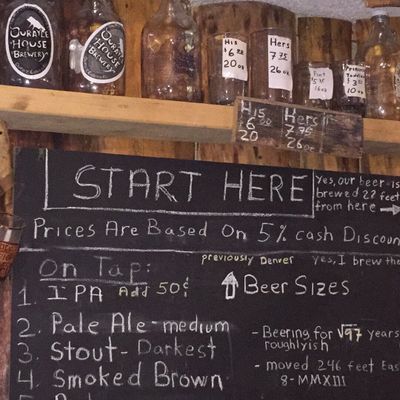 OURAYLE
HOUSE
BREWERY
OURAYLE
HOUSE
BREWERY
His
$6
20
Hers
7.75
26 oz
Pint
16 oz
$3
10 oz
His
$6
20
Hers
7.75
26 oz
START HERE
Yes, our beer is
brewed 22 feet
from here →
PRICES ARE BASED ON 5% CASH DISCOUN
On Tap:
previously Denver
yes, I brew the
1. IPA Add 50¢
↑ Beer Sizes
2. Pale Ale-medium
3. Stout-Darkest
4 Smoked Brown
- Beering for √97 years
roughlyish
- moved 246 feet Eas
8-MMXIII